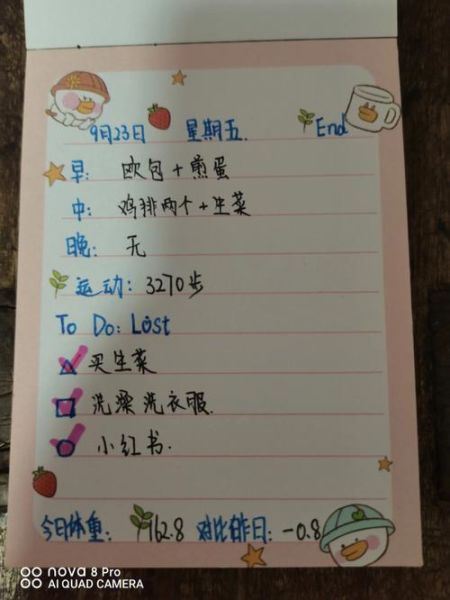 9月23日 星期五. End
早: 欧包+煎蛋
中: 鸡排两个+生菜
晚: 无
运动: 3270步
To Do: Lost
买生菜
洗澡洗衣服.
小红书.
今日体重: 162.8 对比昨日: -0.8
nova 8 Pro
AI QUAD CAMERA